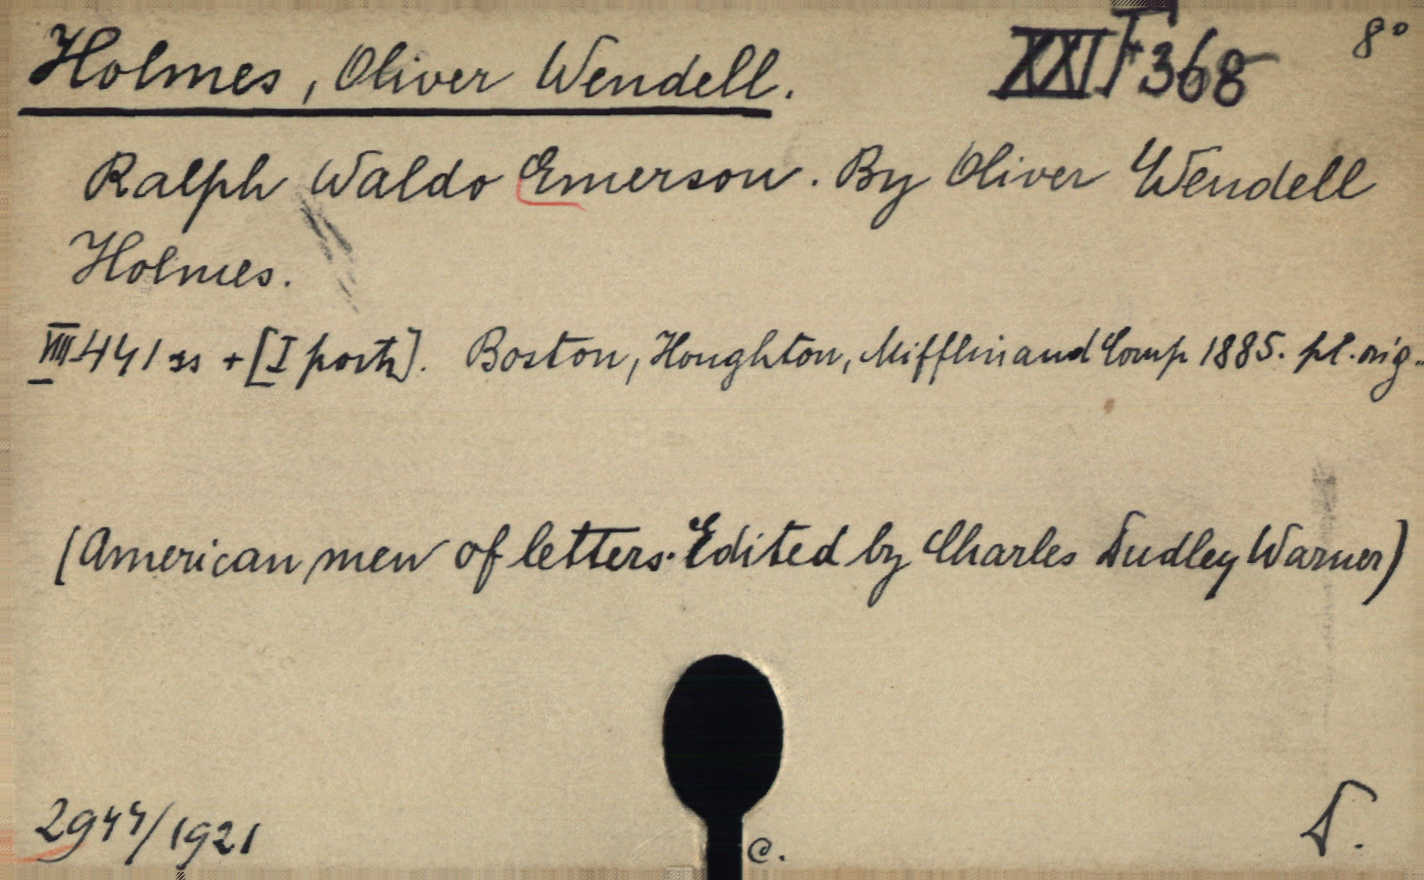 Holmes, Oliver Wendell.
XXI F 368
8°
Ralph Waldo Emerson. By Oliver Wendell
Holmes.
VIII 441 ss + [I portr]. Boston, Houghton, Mifflin and Comp 1885. pl. orig.
(American men of letters. Edited by Charles Dudley Warner)
2944/1921
c.